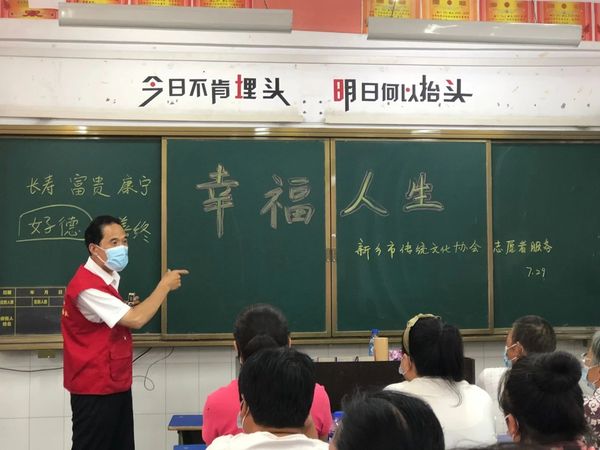 今日不肯埋头 明日何以抬头
长寿 富贵 康宁
好德 善终
幸福人生
新乡市传统文化协会 志愿者服务
7.29
日期 年 月 日